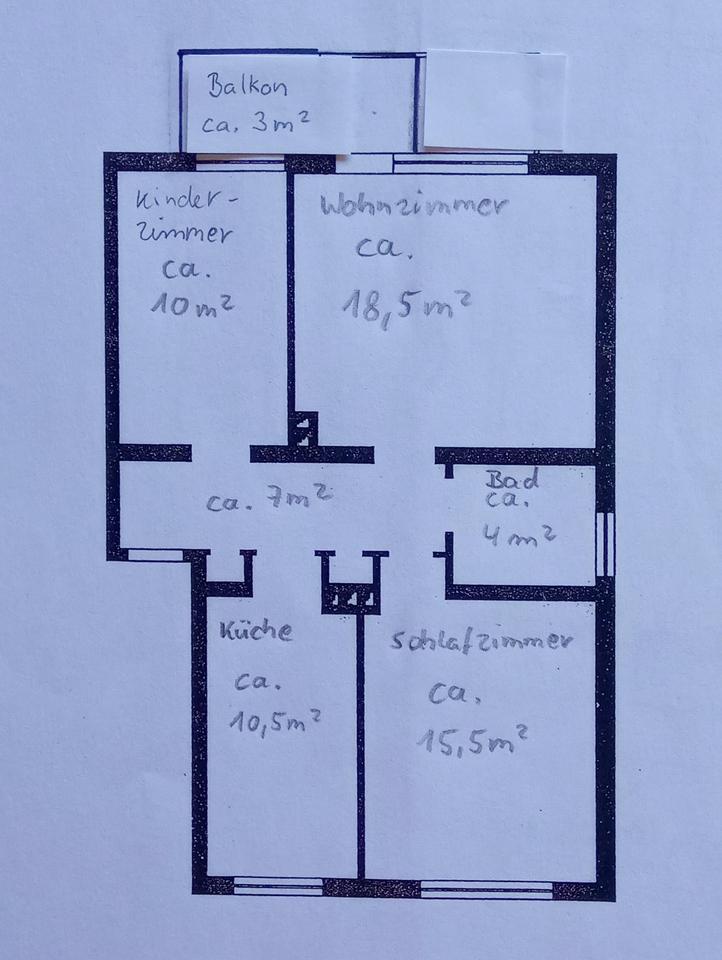 Balkon
ca. 3m²
Kinder-
zimmer
ca.
10m²
Wohnzimmer
ca.
18,5m²
ca. 7m²
Bad
ca.
4m²
Küche
ca.
10,5m²
Schlafzimmer
ca.
15,5m²